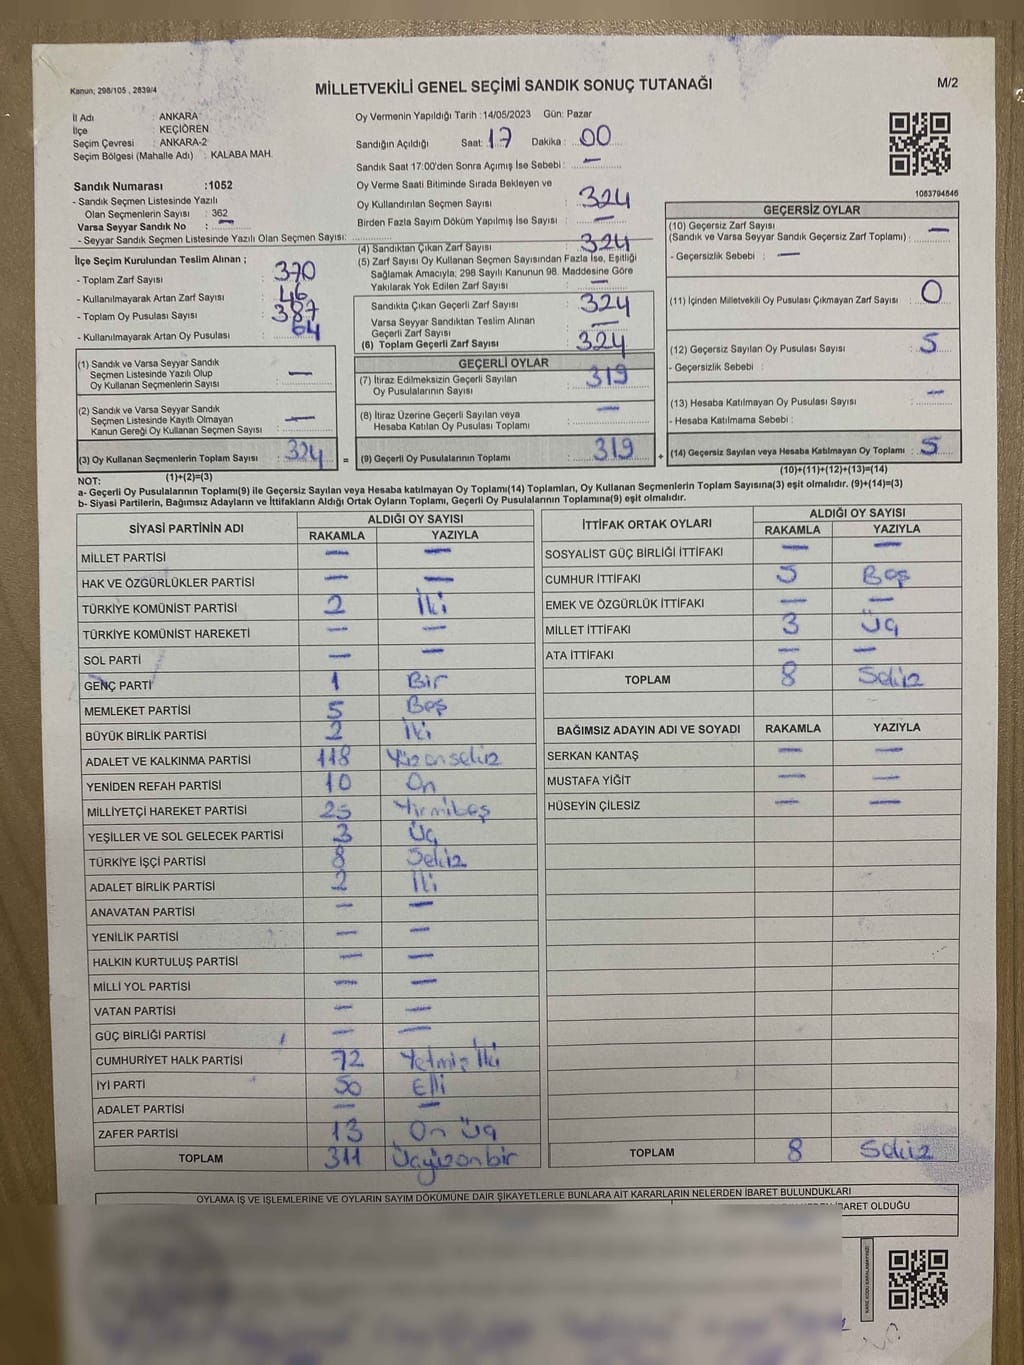 Kanun; 298/105 , 2839/4
MİLLETVEKİLİ GENEL SEÇİMİ SANDIK SONUÇ TUTANAĞI
M/2
İl Adı : ANKARA
İlçe : KEÇİÖREN
Seçim Çevresi : ANKARA-2
Seçim Bölgesi (Mahalle Adı) : KALABA MAH.
Sandık Numarası :1052
- Sandık Seçmen Listesinde Yazılı
Olan Seçmenlerin Sayısı : 362
Varsa Seyyar Sandık No : —
- Seyyar Sandık Seçmen Listesinde Yazılı Olan Seçmen Sayısı:
İlçe Seçim Kurulundan Teslim Alınan ;
- Toplam Zarf Sayısı : 370
- Kullanılmayarak Artan Zarf Sayısı : 46
- Toplam Oy Pusulası Sayısı : 387
- Kullanılmayarak Artan Oy Pusulası : 64
(1) Sandık ve Varsa Seyyar Sandık
Seçmen Listesinde Yazılı Olup
Oy Kullanan Seçmenlerin Sayısı : —
(2) Sandık ve Varsa Seyyar Sandık
Seçmen Listesinde Kayıtlı Olmayan
Kanun Gereği Oy Kullanan Seçmen Sayısı : —
(3) Oy Kullanan Seçmenlerin Toplam Sayısı : 324
(1)+(2)=(3)
Oy Vermenin Yapıldığı Tarih : 14/05/2023 Gün: Pazar
Sandığın Açıldığı Saat: 17 Dakika : 00
Sandık Saat 17:00'den Sonra Açımış İse Sebebi : —
Oy Verme Saati Bitiminde Sırada Bekleyen ve
Oy Kullandırılan Seçmen Sayısı : 324
Birden Fazla Sayım Döküm Yapılmış İse Sayısı : —
(4) Sandıktan Çıkan Zarf Sayısı : 324
(5) Zarf Sayısı Oy Kullanan Seçmen Sayısından Fazla İse, Eşitliği
Sağlamak Amacıyla; 298 Sayılı Kanunun 98. Maddesine Göre
Yakılarak Yok Edilen Zarf Sayısı : —
Sandıkta Çıkan Geçerli Zarf Sayısı : 324
Varsa Seyyar Sandıktan Teslim Alınan
Geçerli Zarf Sayısı : —
(6) Toplam Geçerli Zarf Sayısı : 324
GEÇERLİ OYLAR
(7) İtiraz Edilmeksizin Geçerli Sayılan
Oy Pusulalarının Sayısı : 319
(8) İtiraz Üzerine Geçerli Sayılan veya
Hesaba Katılan Oy Pusulası Toplamı : —
= (9) Geçerli Oy Pusulalarının Toplamı : 319 +
1063794846
GEÇERSİZ OYLAR
(10) Geçersiz Zarf Sayısı
(Sandık ve Varsa Seyyar Sandık Geçersiz Zarf Toplamı) : —
- Geçersizlik Sebebi : —
(11) İçinden Milletvekili Oy Pusulası Çıkmayan Zarf Sayısı : 0
(12) Geçersiz Sayılan Oy Pusulası Sayısı : 5
- Geçersizlik Sebebi :
(13) Hesaba Katılmayan Oy Pusulası Sayısı : —
- Hesaba Katılmama Sebebi :
(14) Geçersiz Sayılan veya Hesaba Katılmayan Oy Toplamı : 5
(10)+(11)+(12)+(13)=(14)
NOT:
a- Geçerli Oy Pusulalarının Toplamı(9) ile Geçersiz Sayılan veya Hesaba katılmayan Oy Toplamı(14) Toplamları, Oy Kullanan Seçmenlerin Toplam Sayısına(3) eşit olmalıdır. (9)+(14)=(3)
b- Siyasi Partilerin, Bağımsız Adayların ve İttifakların Aldığı Ortak Oyların Toplamı, Geçerli Oy Pusulalarının Toplamına(9) eşit olmalıdır.
SİYASİ PARTİNİN ADI ALDIĞI OY SAYISI
RAKAMLA YAZIYLA
MİLLET PARTİSİ — —
HAK VE ÖZGÜRLÜKLER PARTİSİ — —
TÜRKİYE KOMÜNİST PARTİSİ 2 İki
TÜRKİYE KOMÜNİST HAREKETİ — —
SOL PARTİ — —
GENÇ PARTİ 1 Bir
MEMLEKET PARTİSİ 5 Beş
BÜYÜK BİRLİK PARTİSİ 2 İki
ADALET VE KALKINMA PARTİSİ 118 Yüzonsekiz
YENİDEN REFAH PARTİSİ 10 On
MİLLİYETÇİ HAREKET PARTİSİ 25 Yirmibeş
YEŞİLLER VE SOL GELECEK PARTİSİ 3 Üç
TÜRKİYE İŞÇİ PARTİSİ 8 Sekiz
ADALET BİRLİK PARTİSİ 2 İki
ANAVATAN PARTİSİ — —
YENİLİK PARTİSİ — —
HALKIN KURTULUŞ PARTİSİ — —
MİLLİ YOL PARTİSİ — —
VATAN PARTİSİ — —
GÜÇ BİRLİĞİ PARTİSİ — —
CUMHURİYET HALK PARTİSİ 72 Yetmiş İki
İYİ PARTİ 50 Elli
ADALET PARTİSİ — —
ZAFER PARTİSİ 13 On Üç
TOPLAM 311 Üçyüzonbir
İTTİFAK ORTAK OYLARI ALDIĞI OY SAYISI
RAKAMLA YAZIYLA
SOSYALİST GÜÇ BİRLİĞİ İTTİFAKI — —
CUMHUR İTTİFAKI 5 Beş
EMEK VE ÖZGÜRLÜK İTTİFAKI — —
MİLLET İTTİFAKI 3 Üç
ATA İTTİFAKI — —
TOPLAM 8 Sekiz
BAĞIMSIZ ADAYIN ADI VE SOYADI RAKAMLA YAZIYLA
SERKAN KANTAŞ — —
MUSTAFA YİĞİT — —
HÜSEYİN ÇİLESİZ — —
TOPLAM 8 Sekiz
OYLAMA İŞ VE İŞLEMLERİNE VE OYLARIN SAYIM DÖKÜMÜNE DAİR ŞİKAYETLERLE BUNLARA AİT KARARLARIN NELERDEN İBARET BULUNDUKLARI
İBARET OLDUĞU